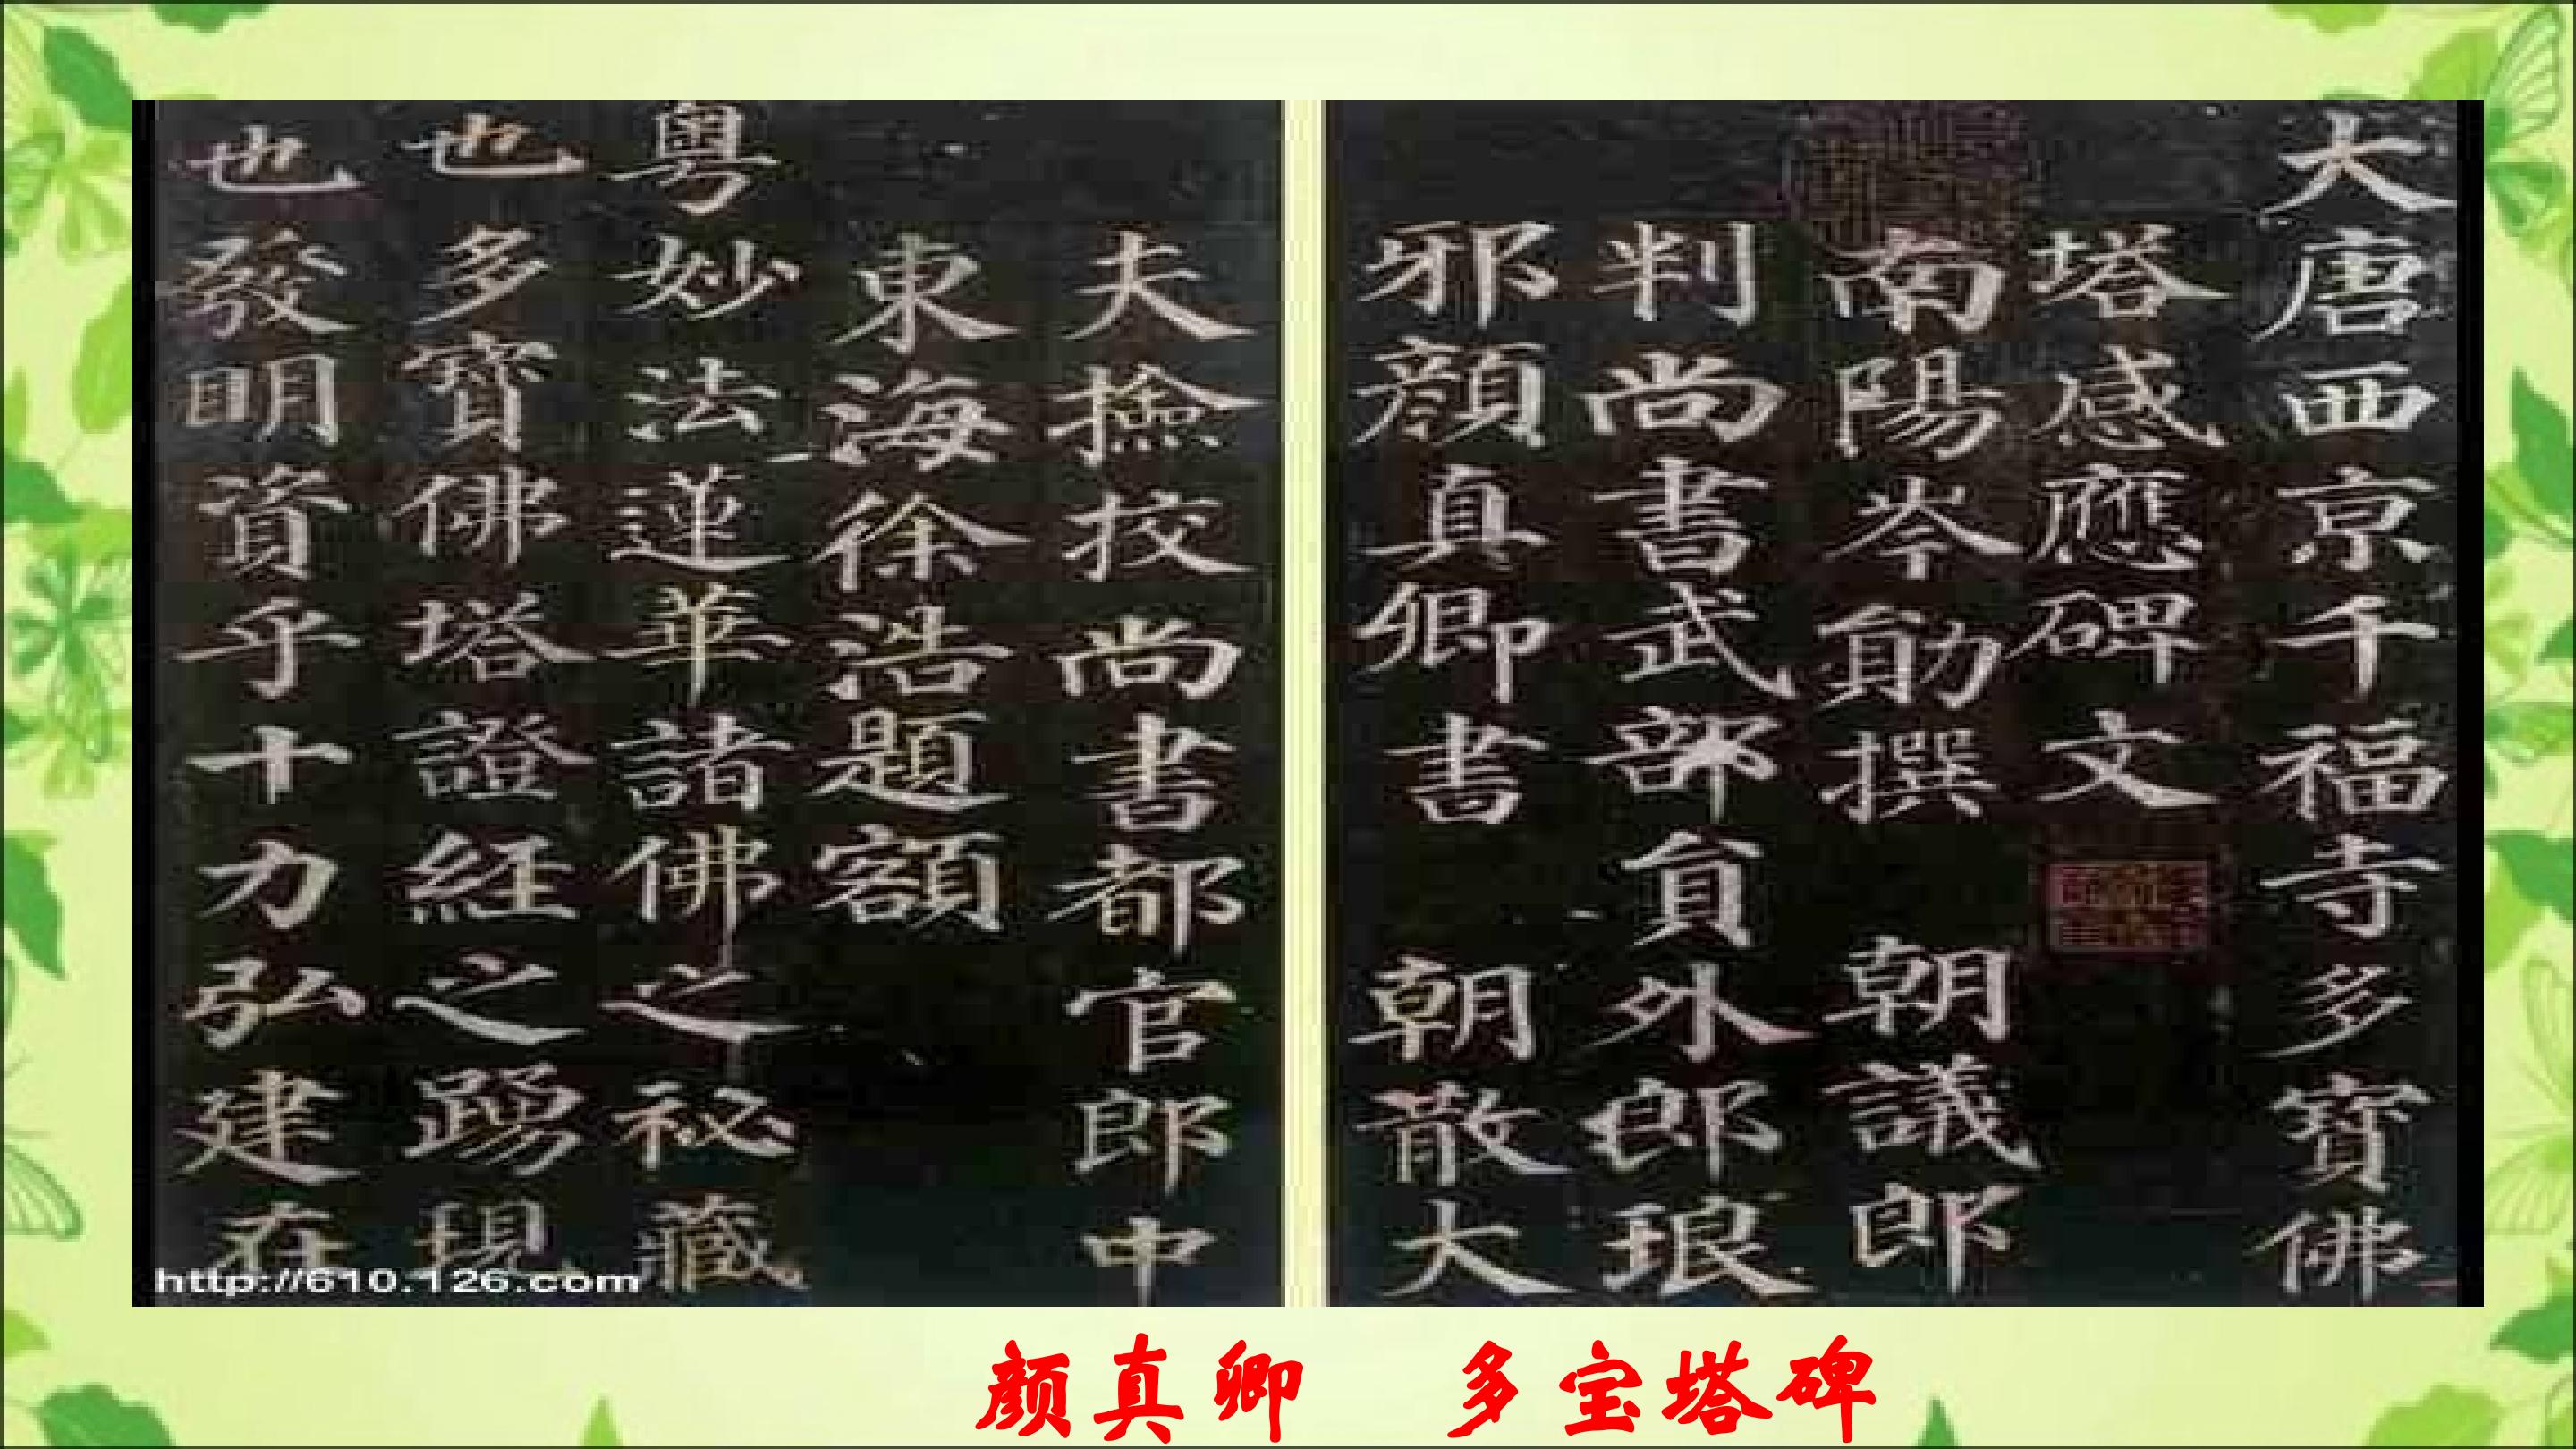 大唐西京千福寺多寶佛
塔感應碑文
南陽岑勛撰 朝議郎
判尚書武部員外郎琅
邪顏真卿書 朝散大
夫撿挍尚書都官郎中
東海徐浩題額
粵妙法蓮華諸佛之祕藏
也多寶佛塔證經之踴現
也發明資乎十力弘建在
http://610.126.com
颜真卿 多宝塔碑